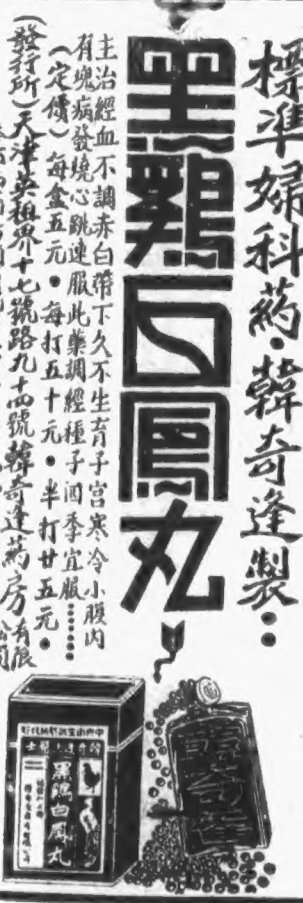 標準婦科葯·韓奇逢製
黑鷄白鳳丸
主治經血不調赤白帶下久不生育子宮寒冷小腹內
有塊病發燒心跳連服此藥調經種子四季宜服……
(定價)每盒五元•每打五十元•半打廿五元•
(發行所)天津英租界十七號路九十四號韓奇逢葯房有限公司
黑鷄白鳳丸
韓奇逢